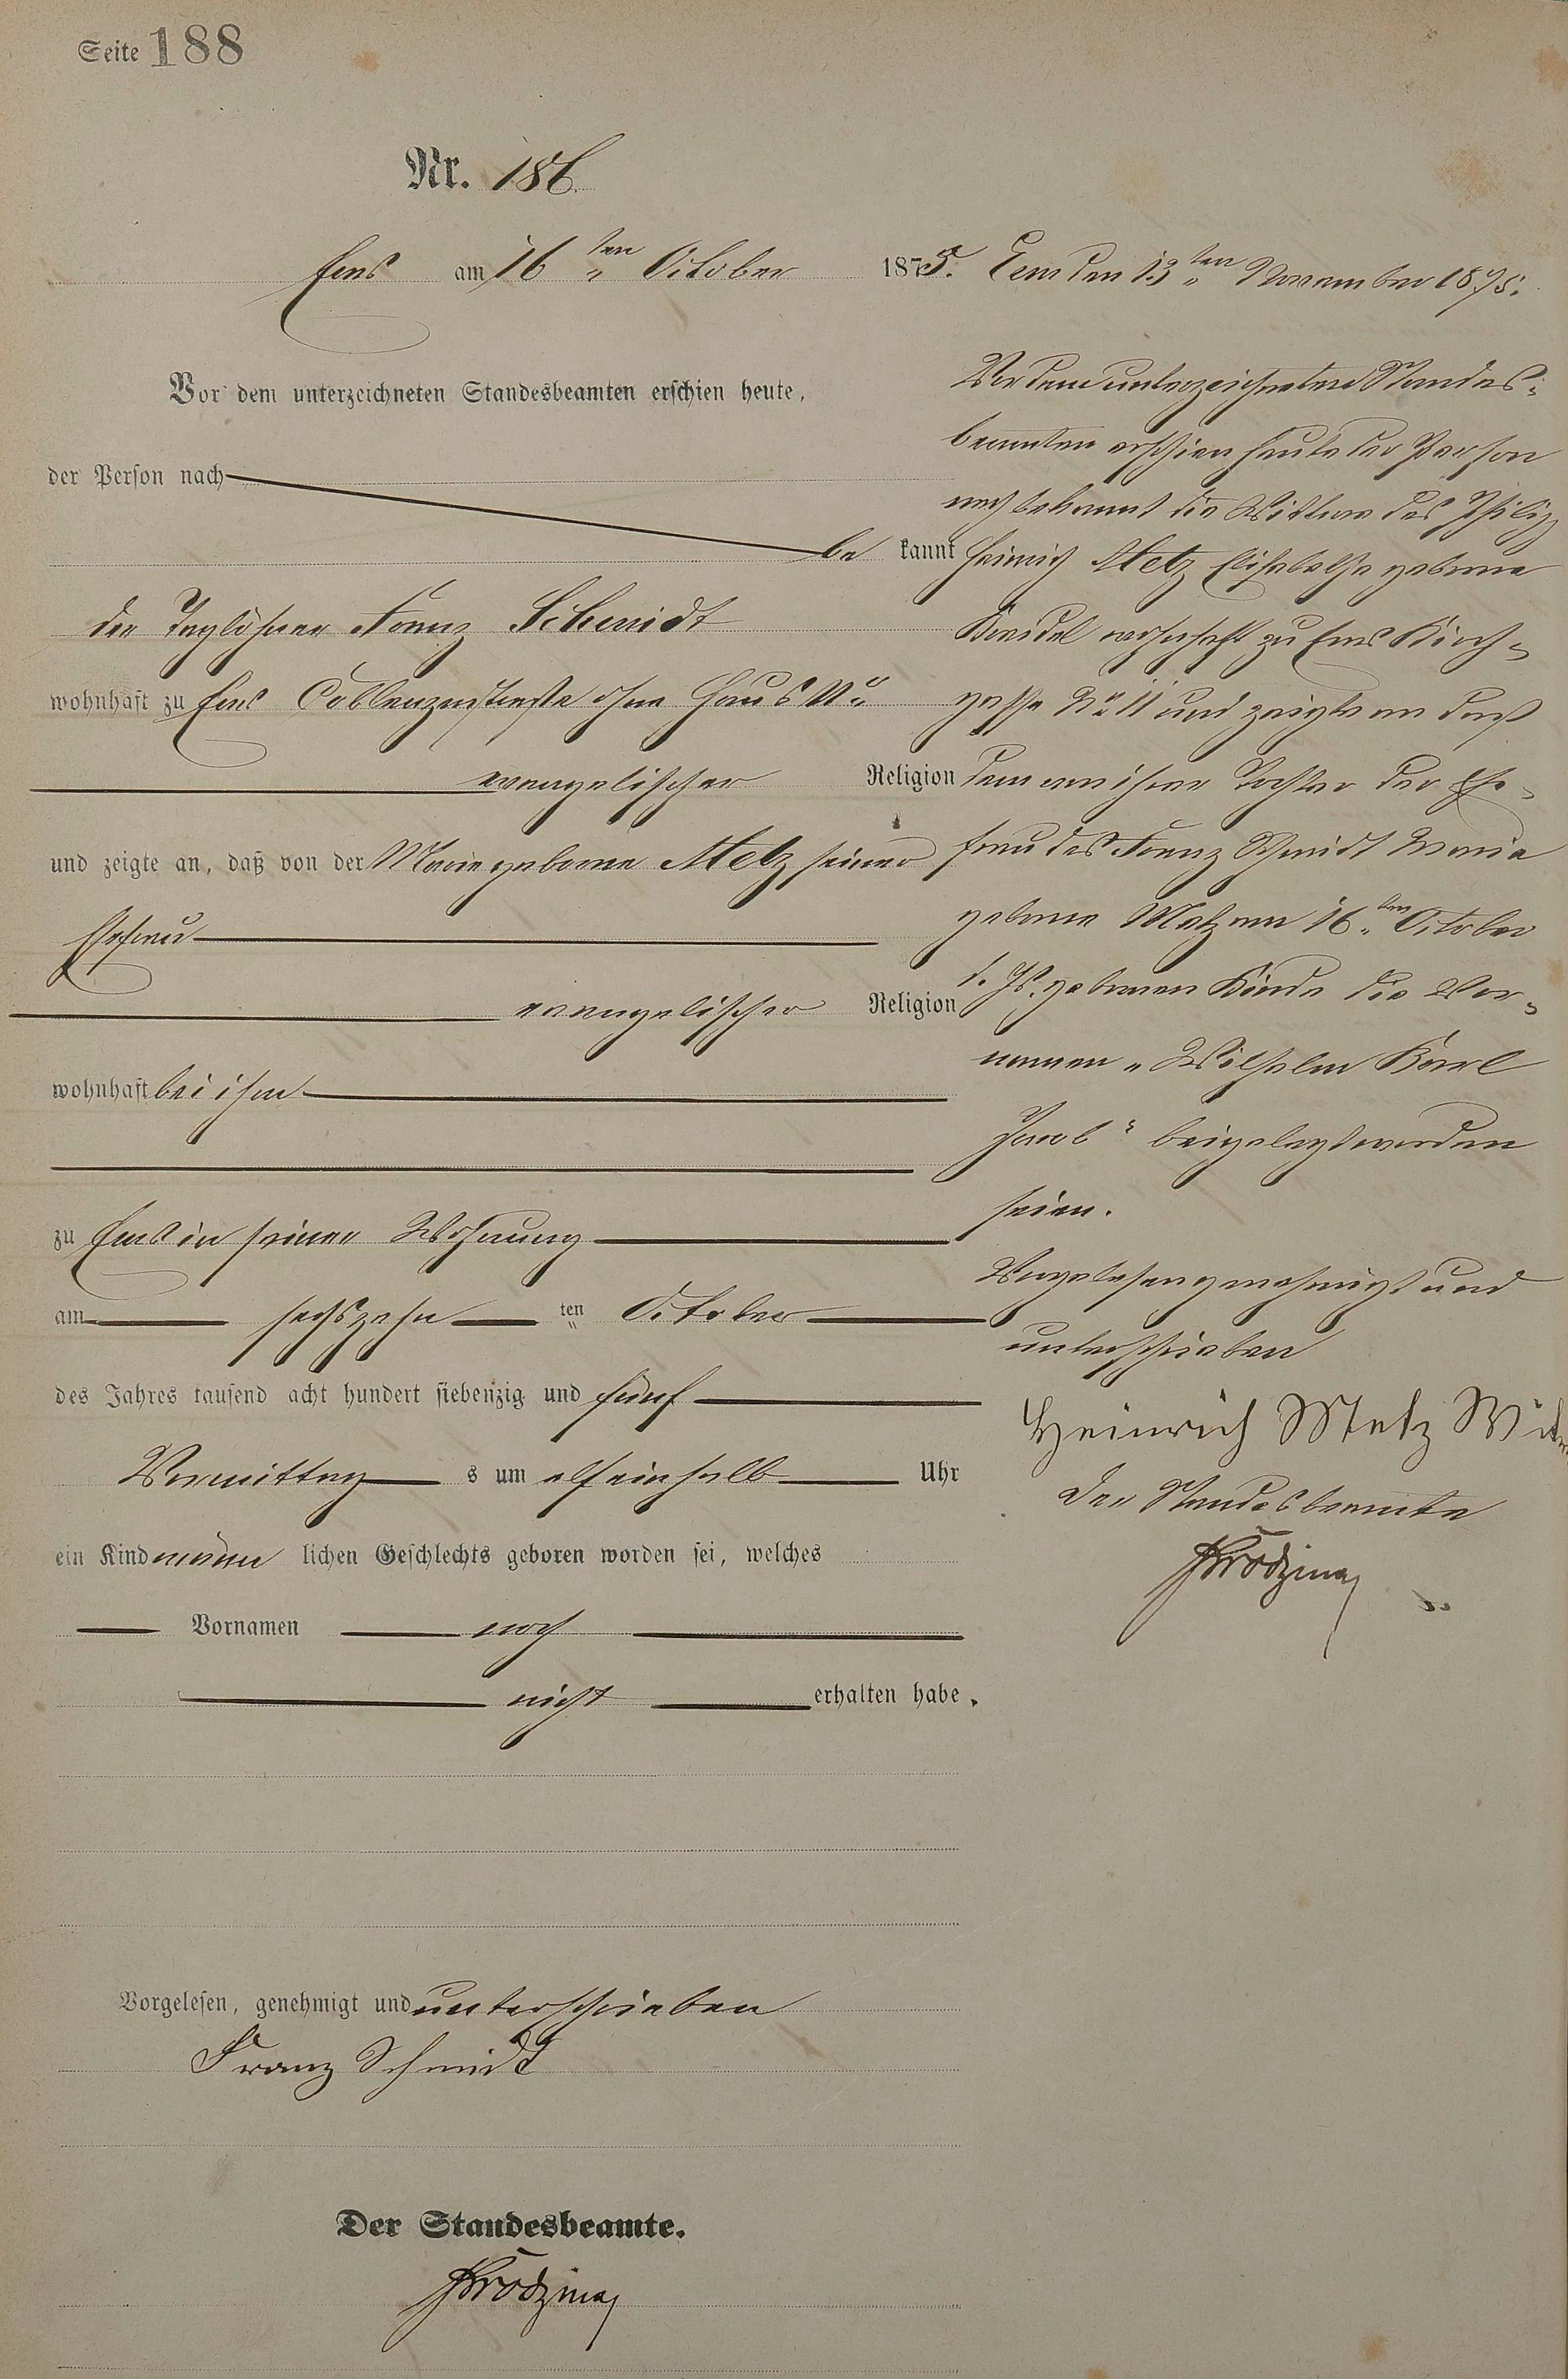 Seite 188
Nr. 186.
Ems am 16ten October 1875.
Vor dem unterzeichneten Standesbeamten erschien heute,
der Person nach
be kannt
der Taglöhner Franz Schmidt
wohnhaft zu Ems Coblenzerstraße ohne Haus No
evangelischer Religion
und zeigte an, daß von der Marie geborene Metz seiner
Ehefrau
evangelischer Religion
wohnhaft bei ihm
zu Ems in seiner Wohnung
am sechszehn ten October
des Jahres tausend acht hundert siebenzig und fünf
Vormittag s um elfeinhalb Uhr
ein Kind männ lichen Geschlechts geboren worden sei, welches
Vornamen noch
nicht erhalten habe.
Vorgelesen, genehmigt und unterschrieben
Franz Schmidt
Der Standesbeamte.
Ems den 13ten November 1875.
Vor dem unterzeichneten Standes-
beamten erschien heute der Person
nach bekannt die Wittwe des Philipp
Heinrich Metz Elisabetha geborene
wohnhaft zu Ems Kirch-
gasse No 11 und zeigte an daß
dem von ihrer Tochter der Ehe-
frau des Franz Schmidt Maria
geborene Metz am 16ten October
d. Js. geborenen Kinde die Vor-
namen „Wilhelm Karl
Jacob“ beigelegt worden
seien.
Vorgelesen genehmigt und
unterschrieben
Heinrich Metz
Der Standesbeamte